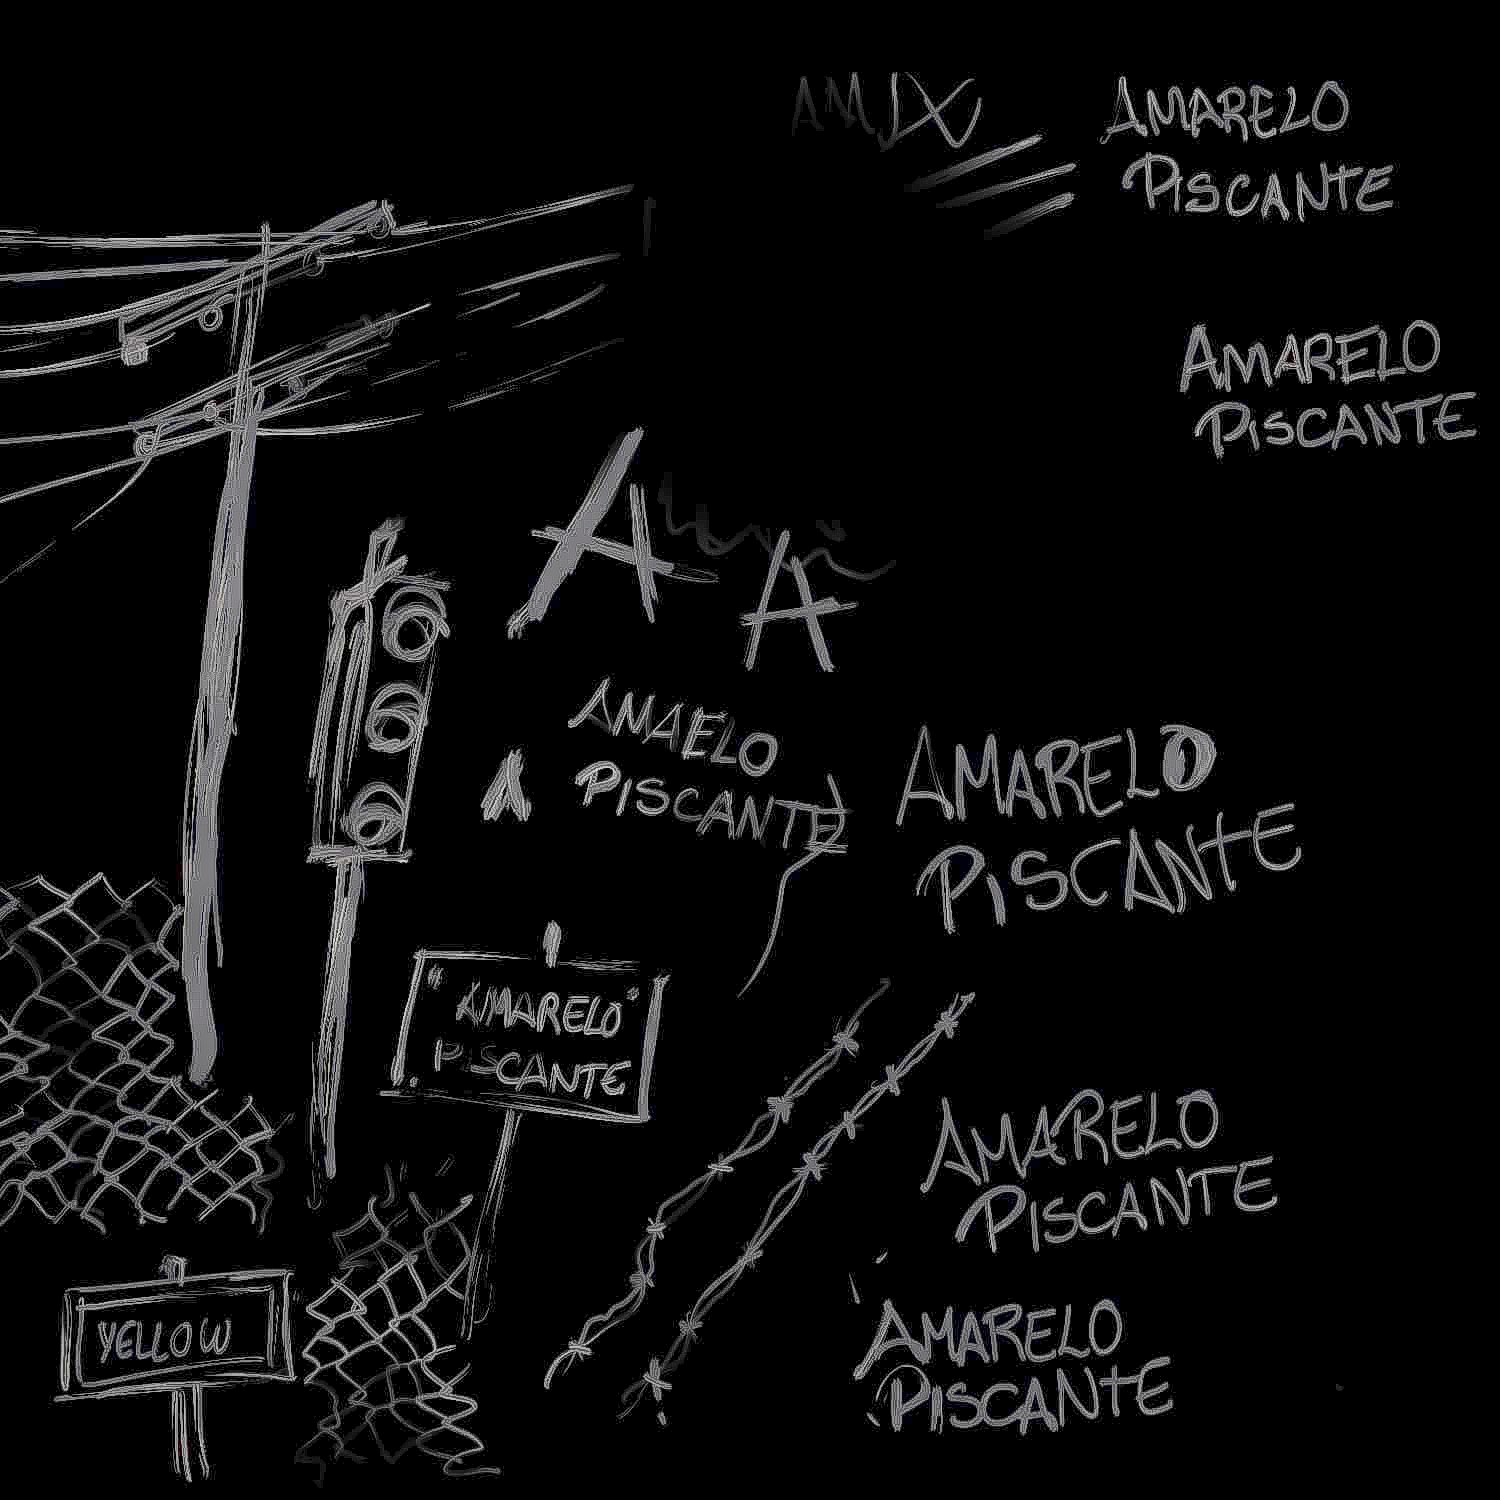 AMARELO
PISCANTE
AMARELO
PISCANTE
A
A
AMAELO
PISCANTE
A
AMARELO
PISCANTE
AMARELO
PISCANTE
AMARELO
PISCANTE
AMARELO
PISCANTE
YELLOW